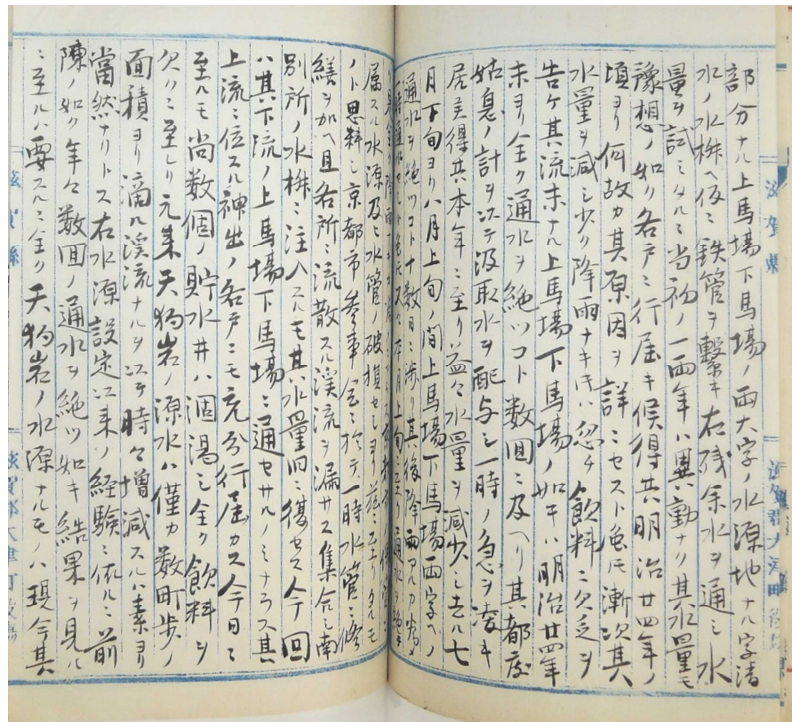 部分ナル上馬場下馬場ノ両大字ノ水源地ナル字清
水ノ水桝ヘ仮ニ鉄管ヲ繋キ右残余水ヲ通シ水
量ヲ試ミタルニ当初ノ一両年ハ異動ナク其水量モ
豫想ノ如ク各戸ニ行届キ候得共明治廿四年ノ
頃ヨリ何故カ其原因ヲ詳ニセスト雖𪜈漸次其
水量ヲ減シ少ク降雨ナキ𪜈ハ忽チ飲料ニ欠乏ヲ
告ケ其流末ナル上馬場下馬場ノ如キハ明治廿四年
来ヨリ全ク通水ヲ絶ツコト数回ニ及ヘリ其都度
姑息ノ計ヲ以テ汲取水ヲ配与シ一時ノ急ヲ凌キ
居候得共本年ニ至リ益々水量ヲ減少シ去ル七
月下旬ヨリ八月上旬ノ間上馬場下馬場両字ヘノ
通水ヲ絶ツコト十数日ニ渉リ其後降雨アルカ為メ
本月上旬ニ至リ通水ヲ絶
属スル水源及ヒ水管ノ破損セシヨリ茲ニ至リタルモ
ノト思料シ京都市参事会ニ於テ一時水管ニ修
繕ヲ加ヘ且各所ニ流散スル渓流ヲ漏サス集合シ南
別所ノ水桝ニ注入スルモ其水量旧ニ復セス今回
ハ其下流ノ上馬場下馬場ニ通セサルノミナラス其
上流ニ位スル神出ノ各戸ニモ充分行届カス今日ニ
至ルモ尚数個ノ貯水井ハ涸渇シ全ク飲料ヲ
欠クニ至レリ元来天狗岩ノ源水ハ僅カ数町歩ノ
面積ヨリ滴ル渓流ナルヲ以テ時々増減スルハ素ヨリ
當然ナリトス右水源設定以来ノ経験ニ依ルニ前
陳ノ如ク年々数回ノ通水ヲ絶ツ如キ結果ヲ見ル
ニ至ルハ要スルニ全ク天狗岩ノ水源ナルモノハ現今其
滋賀縣
滋賀郡大津町役場
滋賀縣
滋賀郡大津町役場